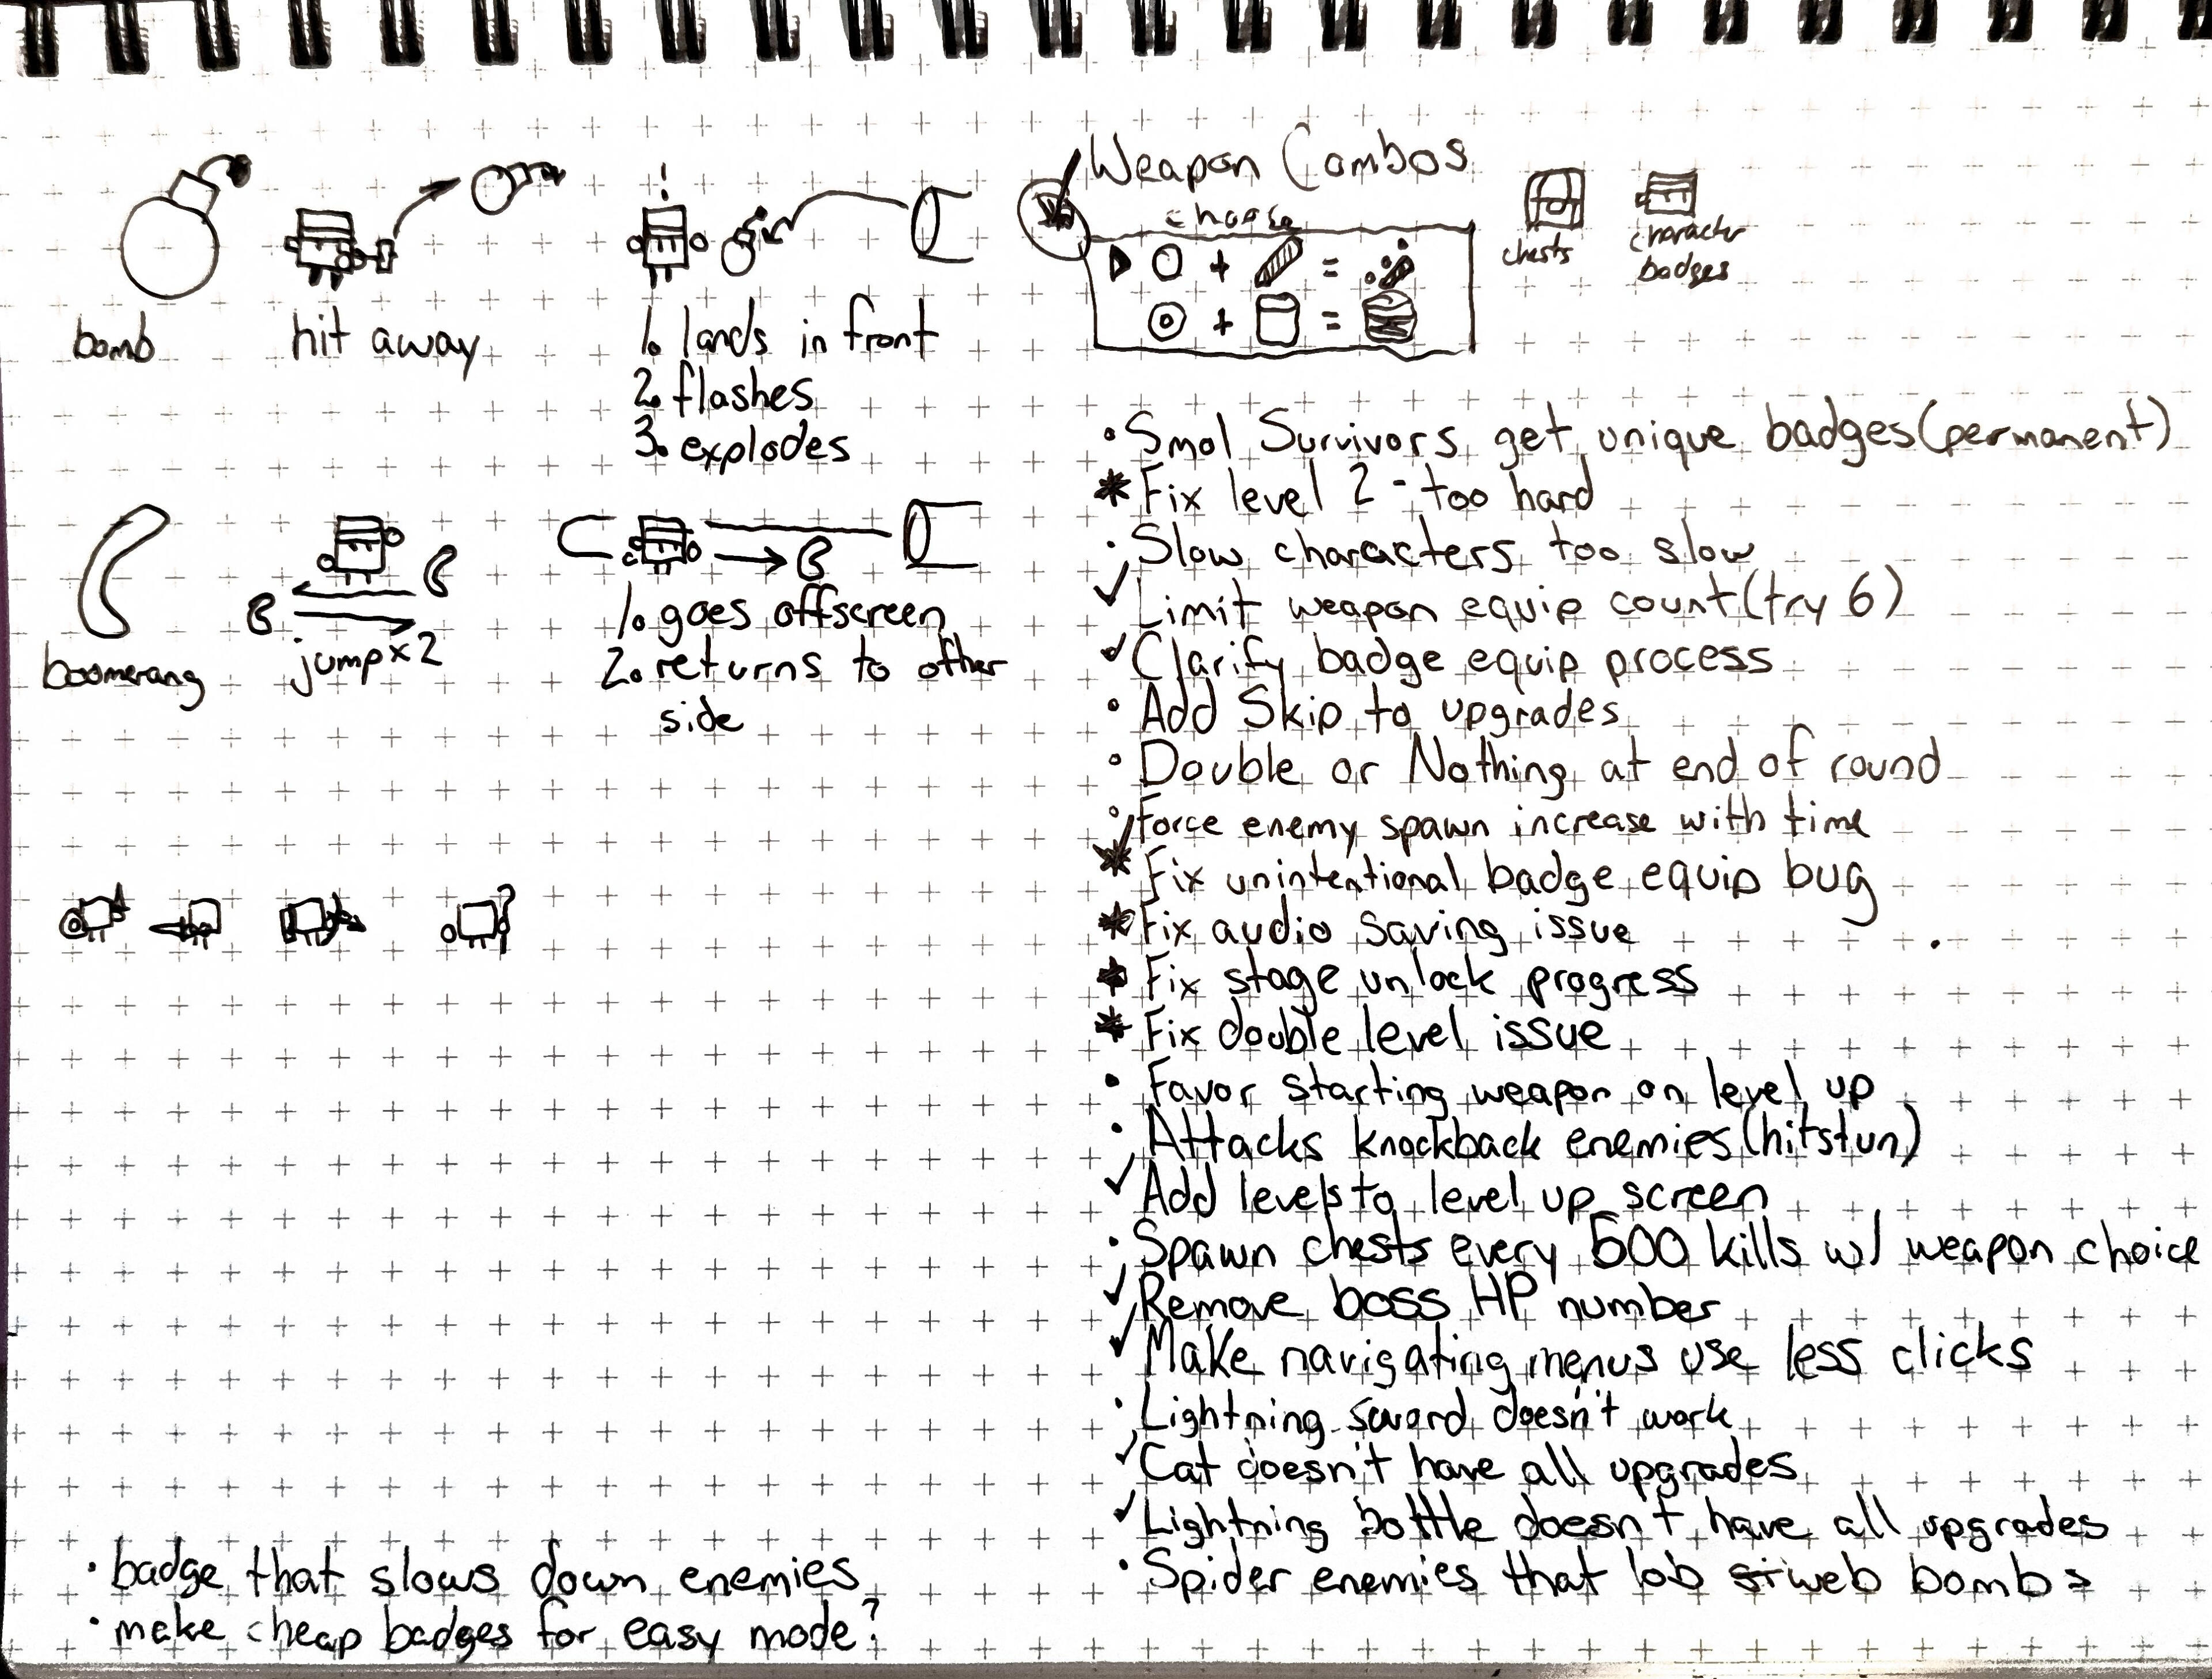 bomb
hit away
1. lands in front
2. flashes
3. explodes
boomerang
jump x2
1. goes offscreen
2. returns to other
side
• badge that slows down enemies
• make cheap badges for easy mode?
Weapon Combos
choose
+ =
+ =
chests
character
badges
• Smol Survivors get unique badges (permanent)
* Fix level 2 - too hard
• Slow characters too slow
✓ Limit weapon equip count (try 6)
✓ Clarify badge equip process
• Add Skip to upgrades
• Double or Nothing at end of round
• Force enemy spawn increase with time
* Fix unintentional badge equip bug
* Fix audio saving issue
* Fix stage unlock progress
* Fix double level issue
• Favor starting weapon on level up
• Attacks knockback enemies (hitstun)
✓ Add levels to level up screen
• Spawn chests every 500 kills w/ weapon choice
✓ Remove boss HP number
✓ Make navigating menus use less clicks
• Lightning sword doesn't work
✓ Cat doesn't have all upgrades
✓ Lightning bottle doesn't have all upgrades
• Spider enemies that lob web bombs